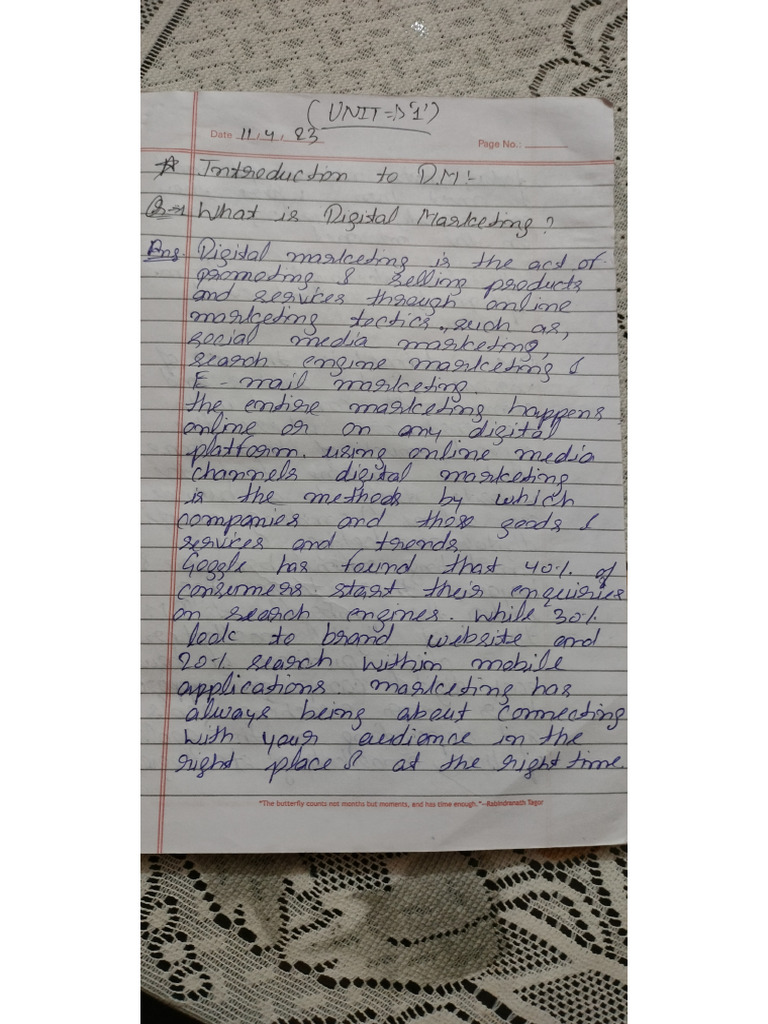 (UNIT=>'1')
Date 11.4.23
Page No.:
☆ Introduction to D.M!
Q-1 What is Digital Marketing?
Ans. Digital marketing is the act of
promoting & selling products
and services through online
marketing tactics, such as,
social media marketing,
search engine marketing &
E-mail marketing.
the entire marketing happens
online or on any digital
platform. using online media
channels digital marketing
is the methods by which
companies and those goods &
services and trends
Google has found that 40% of
consumers start their enquiries
on search engines. while 30%
look to brand website and
20% search within mobile
applications. marketing has
always being about connecting
with your audience in the
right place & at the right time.
"The butterfly counts not months but moments, and has time enough."—Rabindranath Tagor